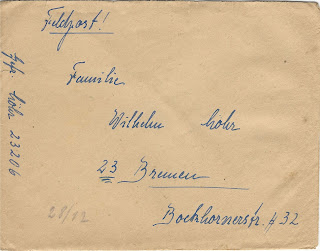 Feldpost!
Familie
Wilhelm Lohr
23 Bremen
Bockhornerstr. # 32
Lohr 23206
28/12